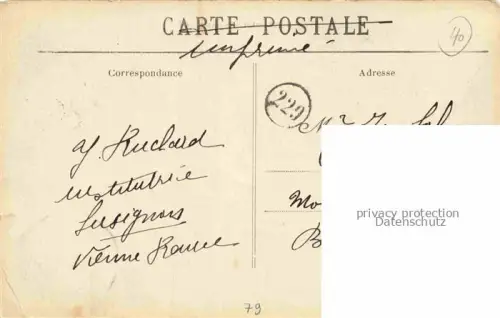 CARTE POSTALE
Imprimé
40
Correspondance
Adresse
229
Y. Ruchard
institutrice
Lusignan
Vienne France
Mr
Mo
B
privacy protection
Datenschutz
79